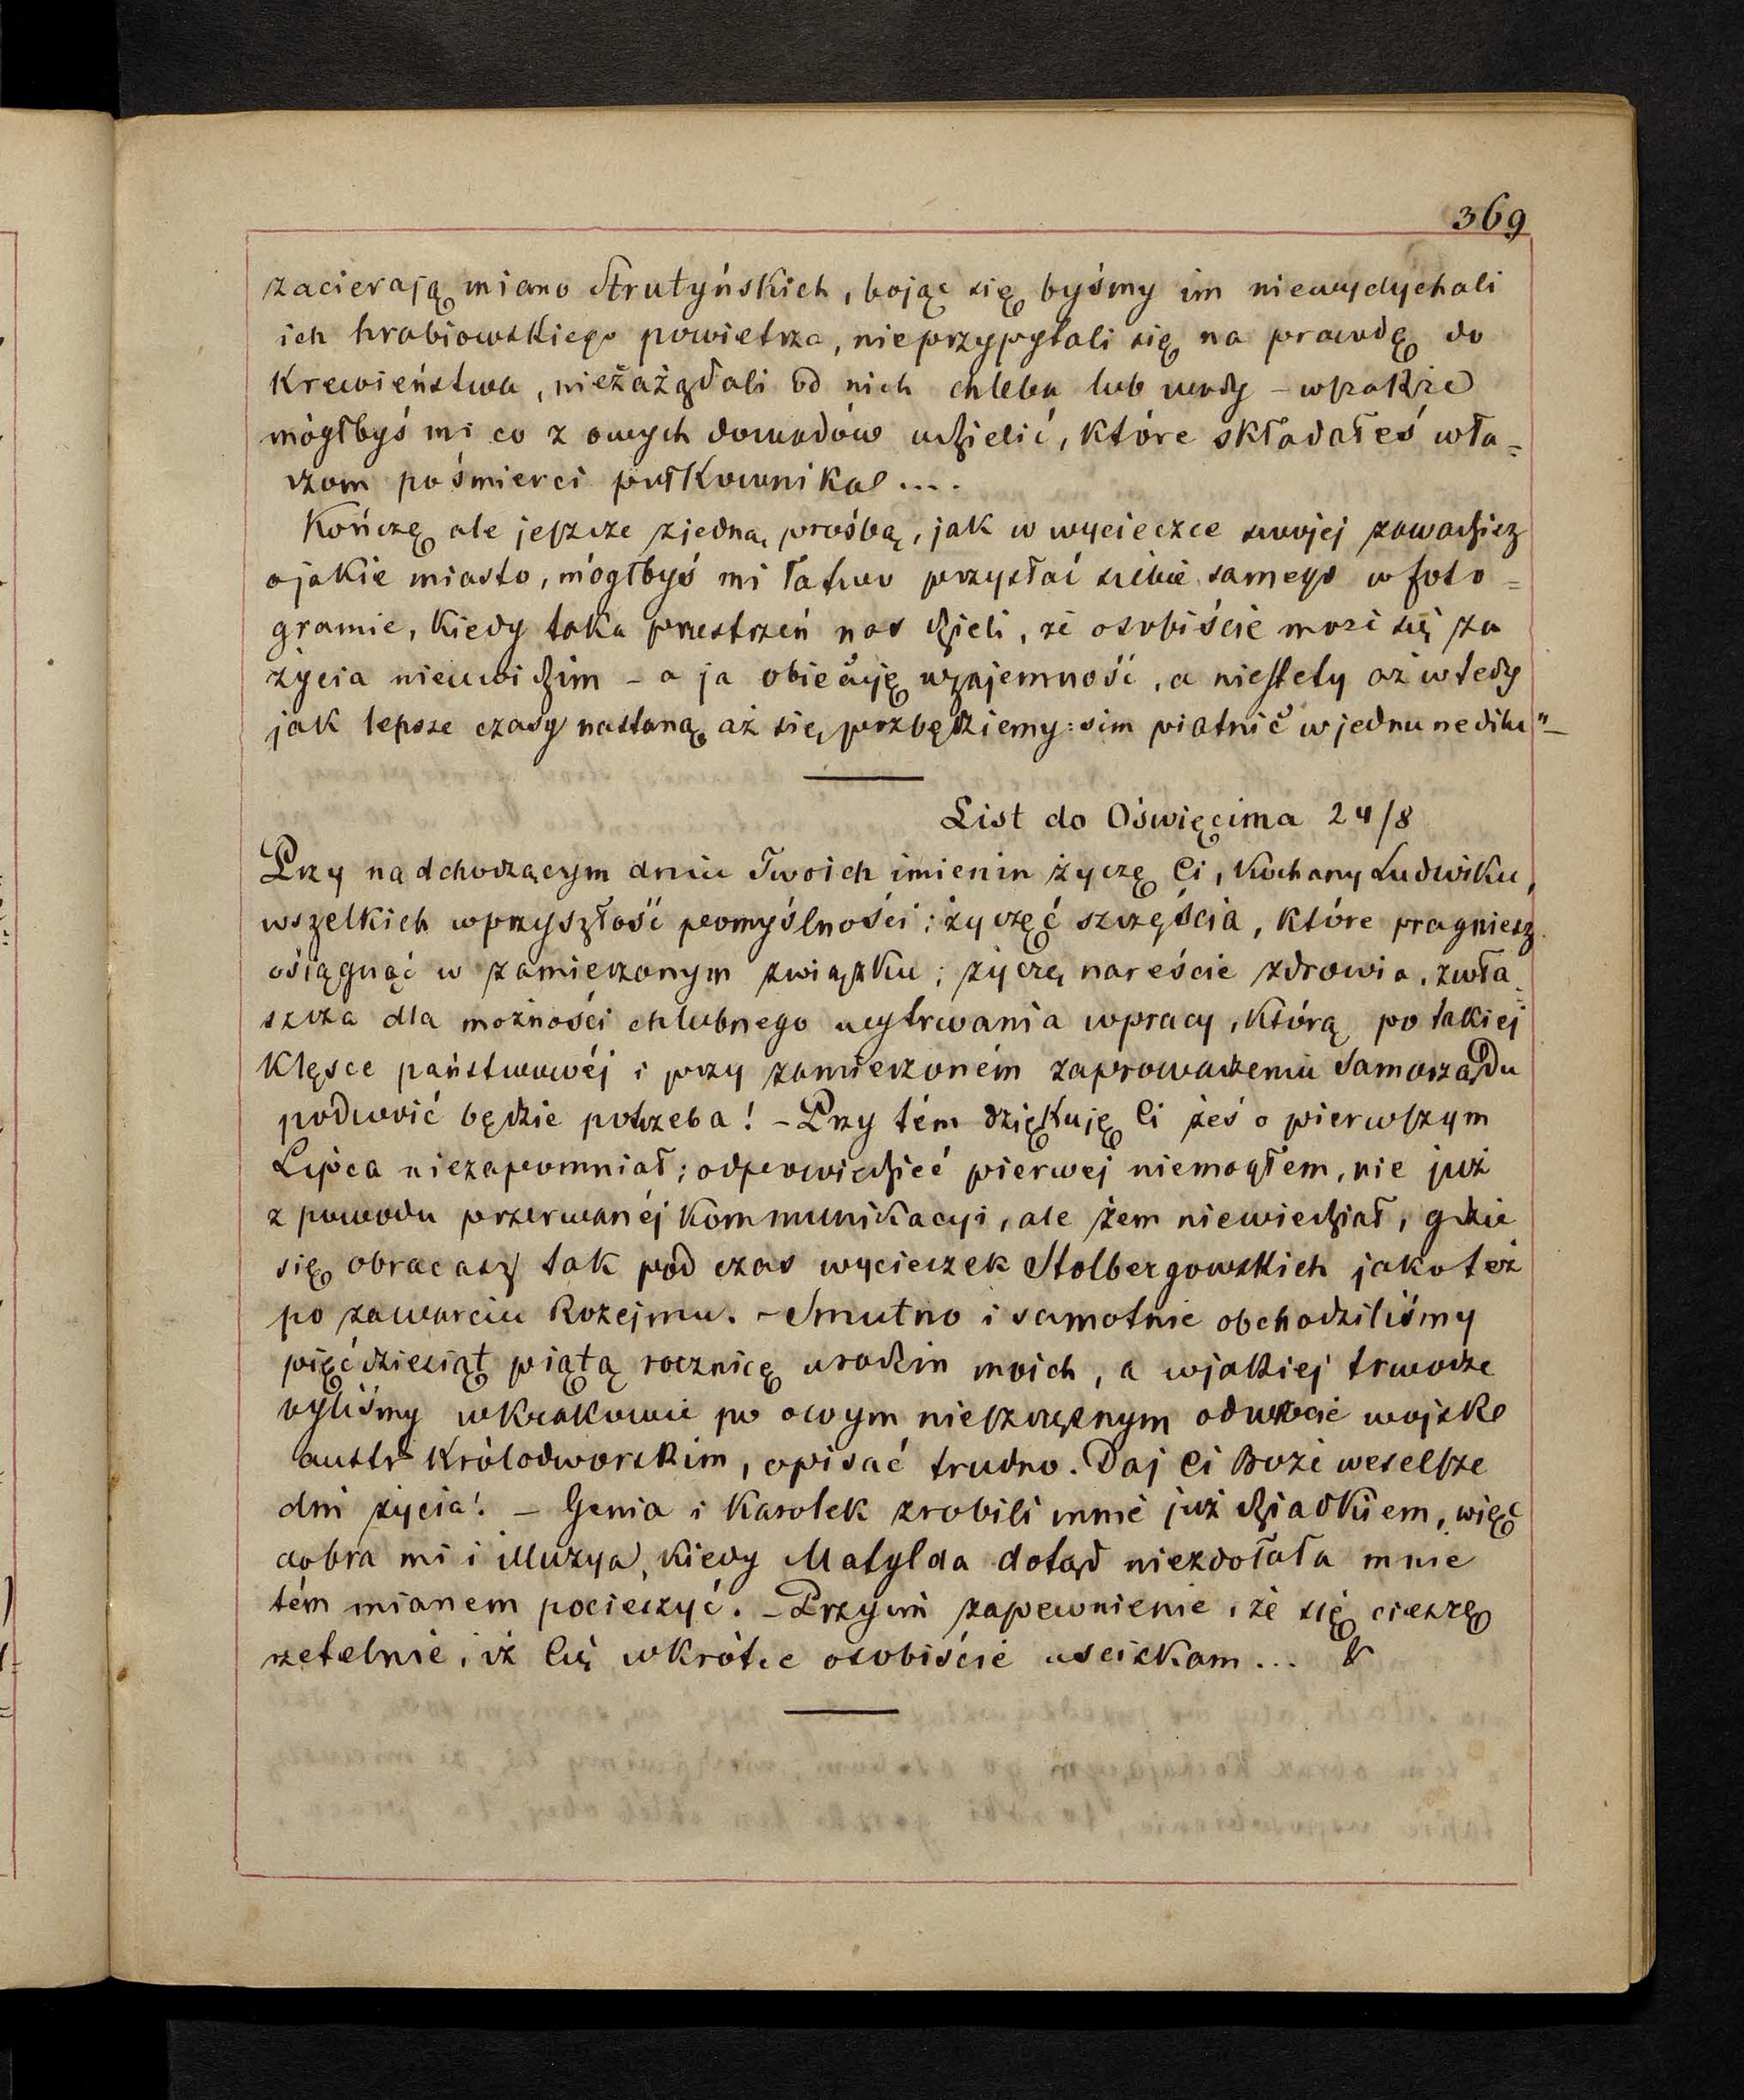 369
zacierają miano Strutyńskich, bojąc się byśmy im niewydychali
ich hrabiowskiego powietrza, nieprzypytali się na prawdę do
Krewieństwa, niezażądali od nich chleba lub wody – wszakże
mógłbyś mi co z owych dowodów udzielić, które składałeś wła=
dzom pośmierci pułkownika ....
Kończę ale jeszcze zjedną prośbą, jak w wycieczce swojej zawadzisz
ojakie miasto, mógłbyś mi łatwo przysłać siebie samego w foto=
gramie, Kiedy taka przestrzeń nas dzieli, że osobiście może się za
życia niewidzim – a ja obiecuję wzajemność, a niestety aż wtedy
jak lepsze czasy nastaną, aż się pozbędziemy: sim piatnić wjednu nedilu"–
List do Oświęcima 24/8
Przy nadchodzącym dniu Twoich imienin życzę Ci, Kochany Ludwiku,
wszelkich wprzyszłość pomyślności; życzę Ć szczęścia, które pragniesz
osiągnąć w zamierzonym związku; życzę nareście zdrowia, zwła=
szcza dla możności chlubnego wytrwania wpracy, którą po takiej
Klęsce państwowéj i przy zamierzoném zaprowadzeniu Samorządu
podwoić będzie potrzeba! – Przy tém dziękuję Ci żeś o pierwszym
Lipca niezapomniał; odpowiedzieć pierwej niemogłem, nie już
z powodu przerwanéj Kommunikacyi, ale żem niewiedział, gdzie
się obracasz tak pod czas wycieczek Stolbergowskich jakoteż
po zawarciu Rozejmu. – Smutno i samotnie obchodziliśmy
pięćdziesiąt piątą rocznicę urodzin moich, a wjakiej trwodze
byliśmy wKrakowie po owym nieszczęsnym odwrocie wojska
austr Królodworskim, opisać trudno. Daj Ci Boże weselsze
dni życia! – Genia i Karolek zrobili mnie już dziadkiem, więc
dobra mi i illuzya, kiedy Matylda dotąd niezdołała mnie
tém mianem pocieszyć. – Przyjm zapewnienie, że się cieszę
rzetelnie, iż Cię wkrótce osobiście uściskam ...